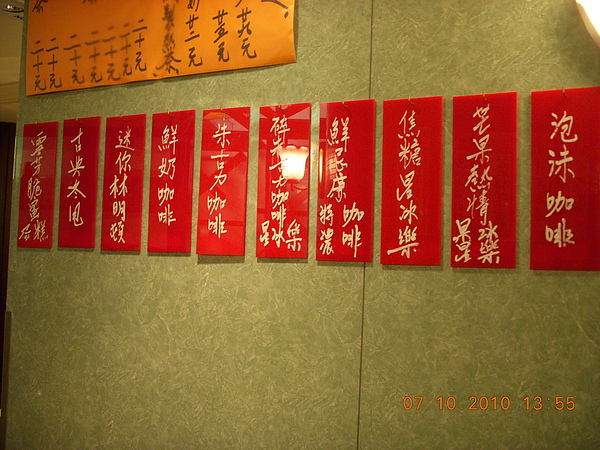 泡沫咖啡
芒果熱情
星冰樂
焦糖星冰樂
鮮忌廉
特濃咖啡
碎朱古力咖啡
星冰樂
朱古力咖啡
鮮奶咖啡
迷你林明頓
古典太甩
蛋糕
茶
廿六元
廿五元
廿二元
二十元
二十元
二十元
二十元
二十元
二十元
07 10 2010 13:55